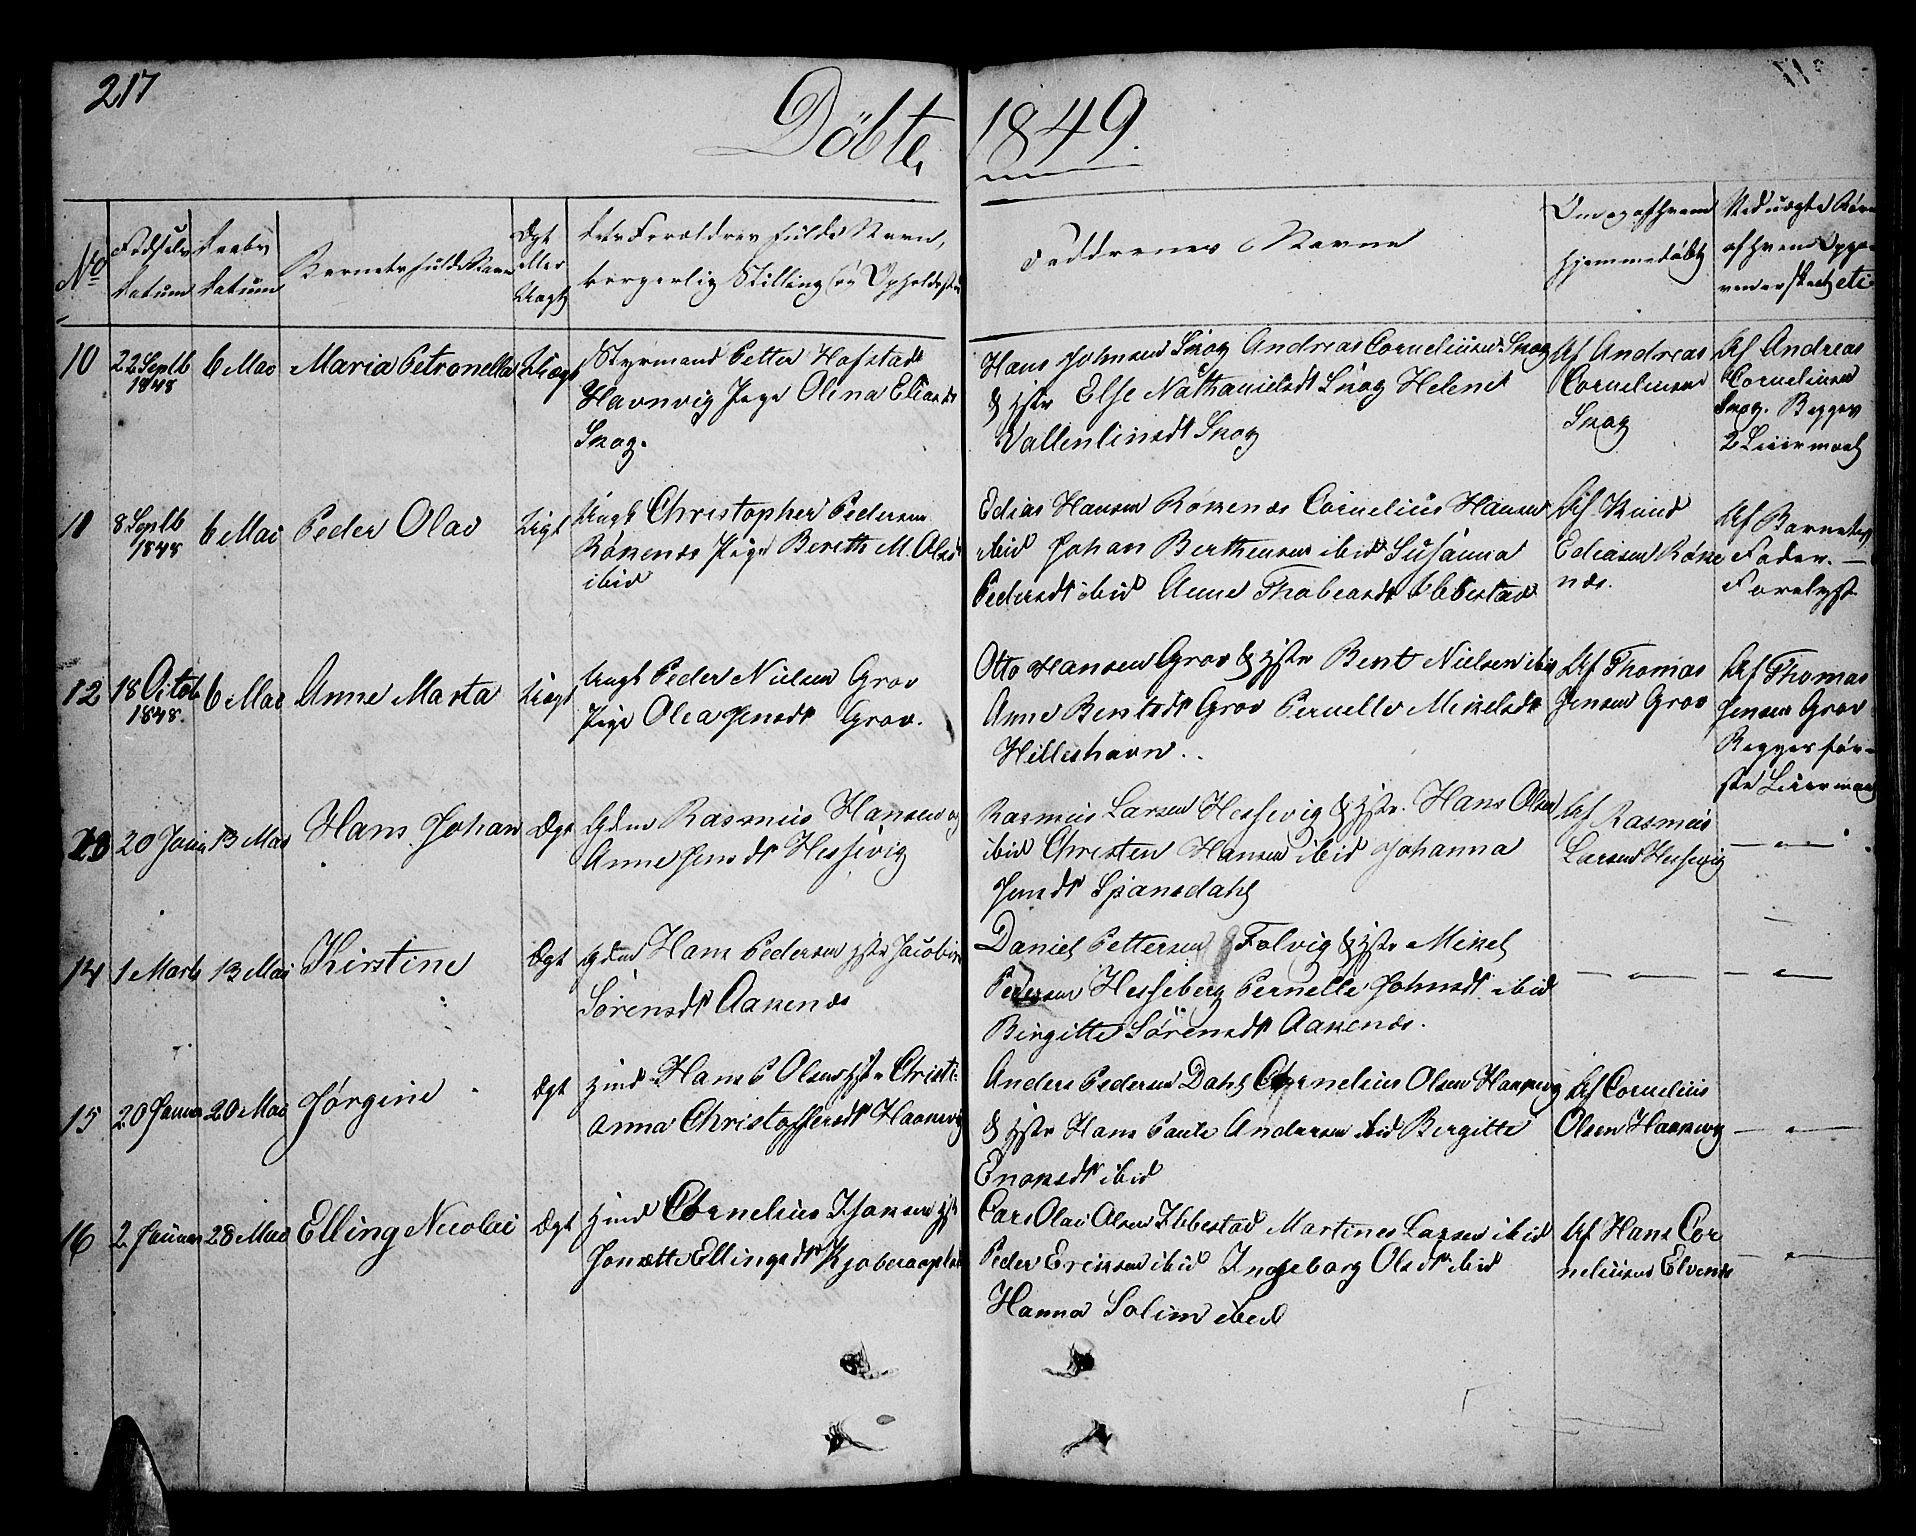 217
Döbte 1849.
No
Fødsels Datum
Daabs Datum
Barnets fulde Navn
Ægt eller Uægt
dets Forældres fulde Navn, borgerlig Stilling og Opholdsted
Faddrenes Navne
Om og af hvem hjemmedøbt
10
22 Septb 1848
6 Mai
Maria Petronella
Uægt
Styrmand Petter Hofstad
Havnvig Pige Olina Eliasdt
Skog.
Hans Johnsen Skog Andreas Corneliusen Skog
& Hstr Else Nathanielsdt Skog Helene
Vallentinsdt Skog
Af Andreas
Corneliusen
Skog
Af Andreas
Corneliusen
Skog. Begges
2 Leiermaal
11
8 Septb 1848
6 Mai
Peder Olav
Uægt
Ungk Christopher Pedersen
Rökenes Pige Berethe M. Olsdt
ibid
Edias Hansen Rökenes Cornelius Hansen
ibid Johan Berthensen ibid Susanna
Pedersdt ibid Anne Thobiasdt Ibbestad
Af Knud
Ediasen Röke
nes.
Af Barnets
Fader. —
Forelyst
12
18 Octob 1848.
6 Mai
Anne Marta
Uægt
Ungk Peder Nielsen Grov
Pige Olea Jensdt Grov.
Otto Hansen Grov & Hstr Bent Nielsen ibid
Anne Bentsdt Grov Pernelle Mikelsdt
Hilleshavn.
Af Thomas
Jensen Grov
Af Thomas
Jensen Grov
Begges før-
ste Leiermaal
13
20 Janu
13 Mai
Hans Johan
Ægt
Gdm Rasmus Hansen og
Anne Jensdt Hessevig
Rasmus Larsen Hessevig & Hstr. Hans Olsen
ibid Christen Hansen ibid Johanna
Jensdt Spansdahl
Af Rasmus
Larsen Hessevig
14
1 Marts
13 Mai
Kirstine
Ægt
Gdm Hans Pedersen Hstr Jacobine
Sörensdt Aakenes
Daniel Pettersen Folvig & Hstr Mikel
Pedersen Hesseberg Pernelle Johnsdt ibid
Birgitte Sörensdt Aakenes.
15
20 Januar
20 Mai
Jørgine
Ægt
Hmd Hans P Olsen Hstr Christi-
anna Christoffersdt Haakevig
Anders Pedersen Dahl Cornelius Olsen Haakevig
& Hstr Hans Paul Andersen ibid Bergitte
Enoksdt ibid
Af Cornelius
Olsen Haakevig
16
2 Januar
28 Mai
Elling Nicolai
Ægt
Hmd Cornelius Isaksen Hstr
Jonette Ellingsdt
Carl Olai Olsen Ibbestad Martines Larsen ibid
Peder Eriksen ibid Ingeborg Olsdt ibid
Hanna Solim ibid
Af Hans Cor
neliusen Elvenes